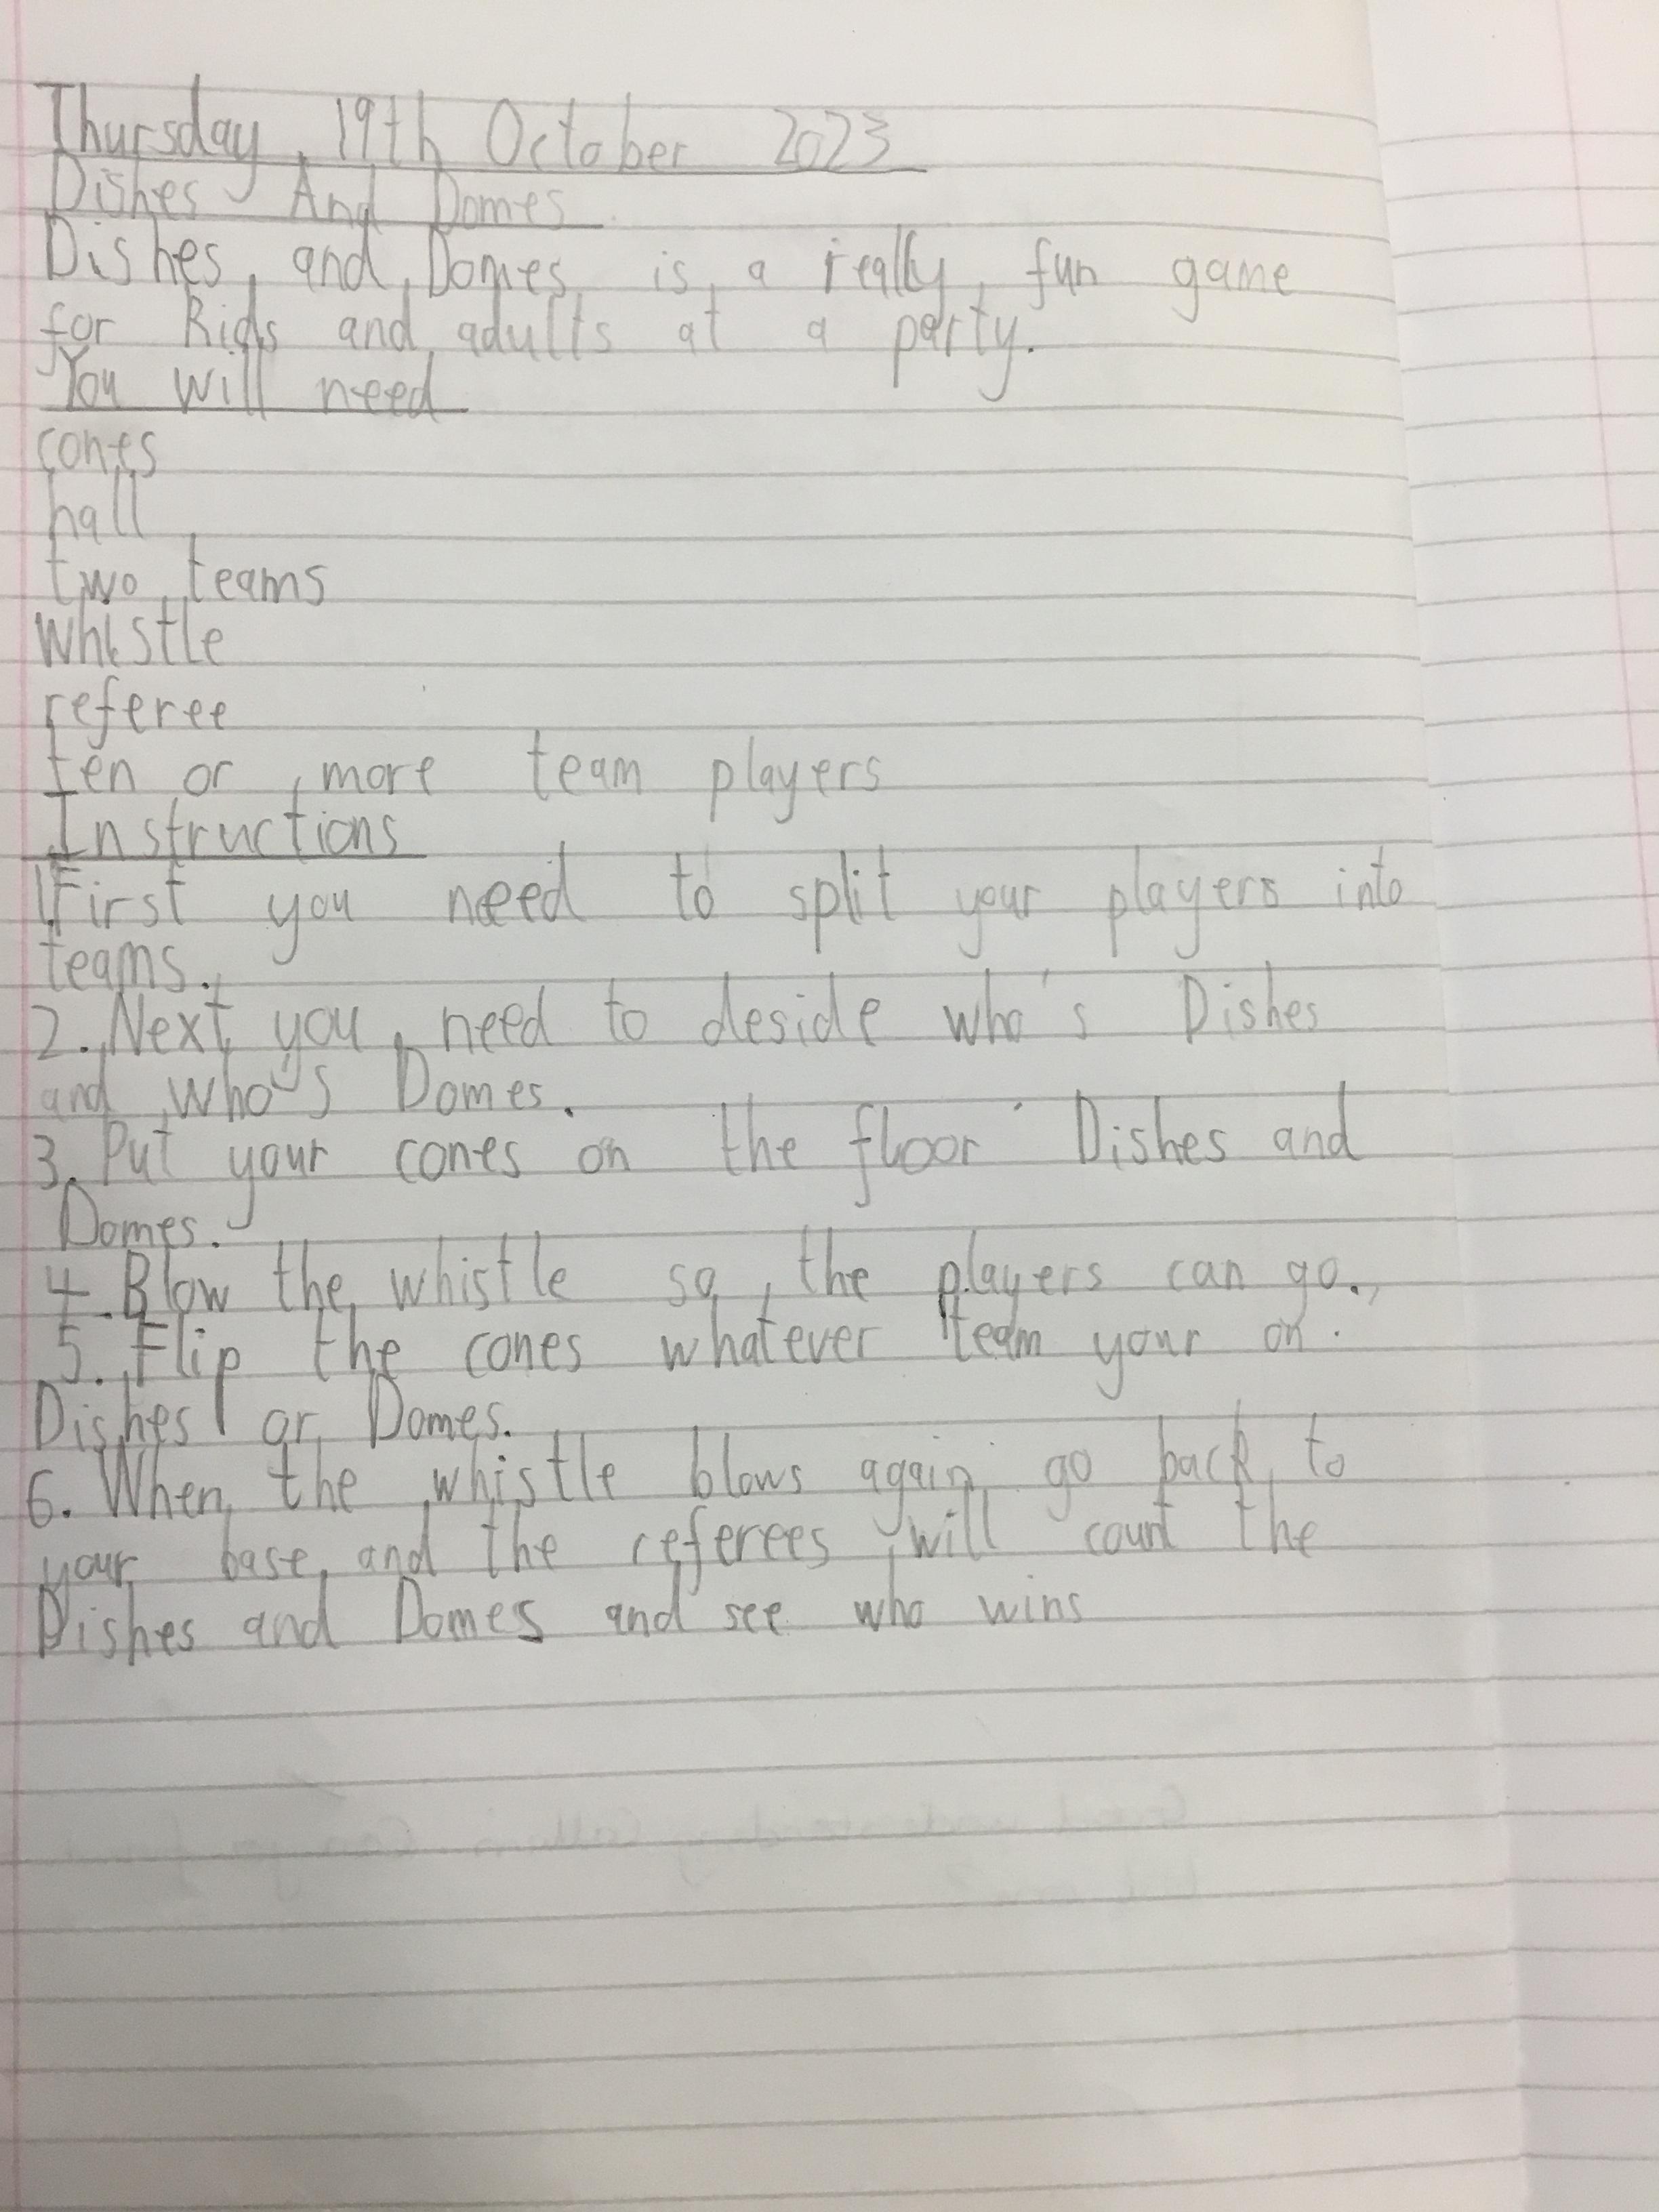 Thursday 19th October 2023
Dishes And Domes
Dishes and Domes is a really fun game
for Kids and adults at a party.
You will need
cones
hall
two teams
whistle
referee
ten or more team players
Instructions
1.First you need to split your players into
teams.
2. Next you need to deside who's Dishes
and who's Domes.
3. Put your cones on the floor Dishes and
Domes.
4. Blow the whistle so the players can go.
5. Flip the cones whatever team your on.
Dishes or Domes.
6. When the whistle blows again go back to
your base and the referees will count the
Dishes and Domes and see who wins